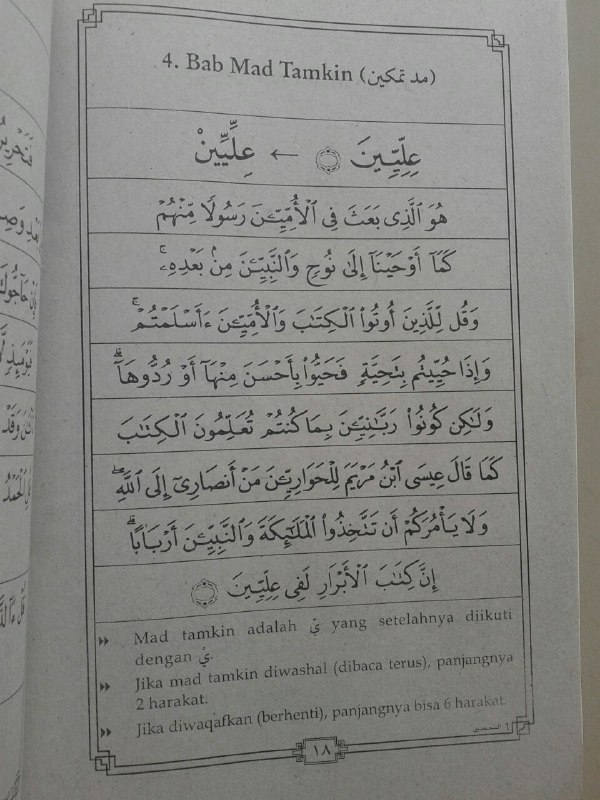 4. Bab Mad Tamkin (مد تمكين)
عِلِّيِّينَ ← عِلِّيِّيْنْ
هُوَ ٱلَّذِى بَعَثَ فِى ٱلۡأُمِّيِّـۧنَ رَسُولًا مِّنۡهُمۡ
كَمَآ أَوۡحَيۡنَآ إِلَىٰ نُوحٍ وَٱلنَّبِيِّـۧنَ مِنۢ بَعۡدِهِۦۚ
وَقُل لِّلَّذِينَ أُوتُوا۟ ٱلۡكِتَـٰبَ وَٱلۡأُمِّيِّـۧنَ ءَأَسۡلَمۡتُمۡۚ
وَإِذَا حُيِّيتُم بِتَحِيَّةٍ فَحَيُّوا۟ بِأَحۡسَنَ مِنۡهَآ أَوۡ رُدُّوهَآۗ
وَلَـٰكِن كُونُوا۟ رَبَّـٰنِيِّـۧنَ بِمَا كُنتُمۡ تُعَلِّمُونَ ٱلۡكِتَـٰبَ
كَمَا قَالَ عِيسَى ٱبۡنُ مَرۡيَمَ لِلۡحَوَارِيِّـۧنَ مَنۡ أَنصَارِىٓ إِلَى ٱللَّهِۖ
وَلَا يَأۡمُرَكُمۡ أَن تَتَّخِذُوا۟ ٱلۡمَلَـٰٓئِكَةَ وَٱلنَّبِيِّـۧنَ أَرۡبَابًاۗ
إِنَّ كِتَـٰبَ ٱلۡأَبۡرَارِ لَفِى عِلِّيِّينَ
Mad tamkin adalah يّ yang setelahnya diikuti
dengan يْ.
Jika mad tamkin diwashal (dibaca terus), panjangnya
2 harakat.
Jika diwaqafkan (berhenti), panjangnya bisa 6 harakat.
١٨